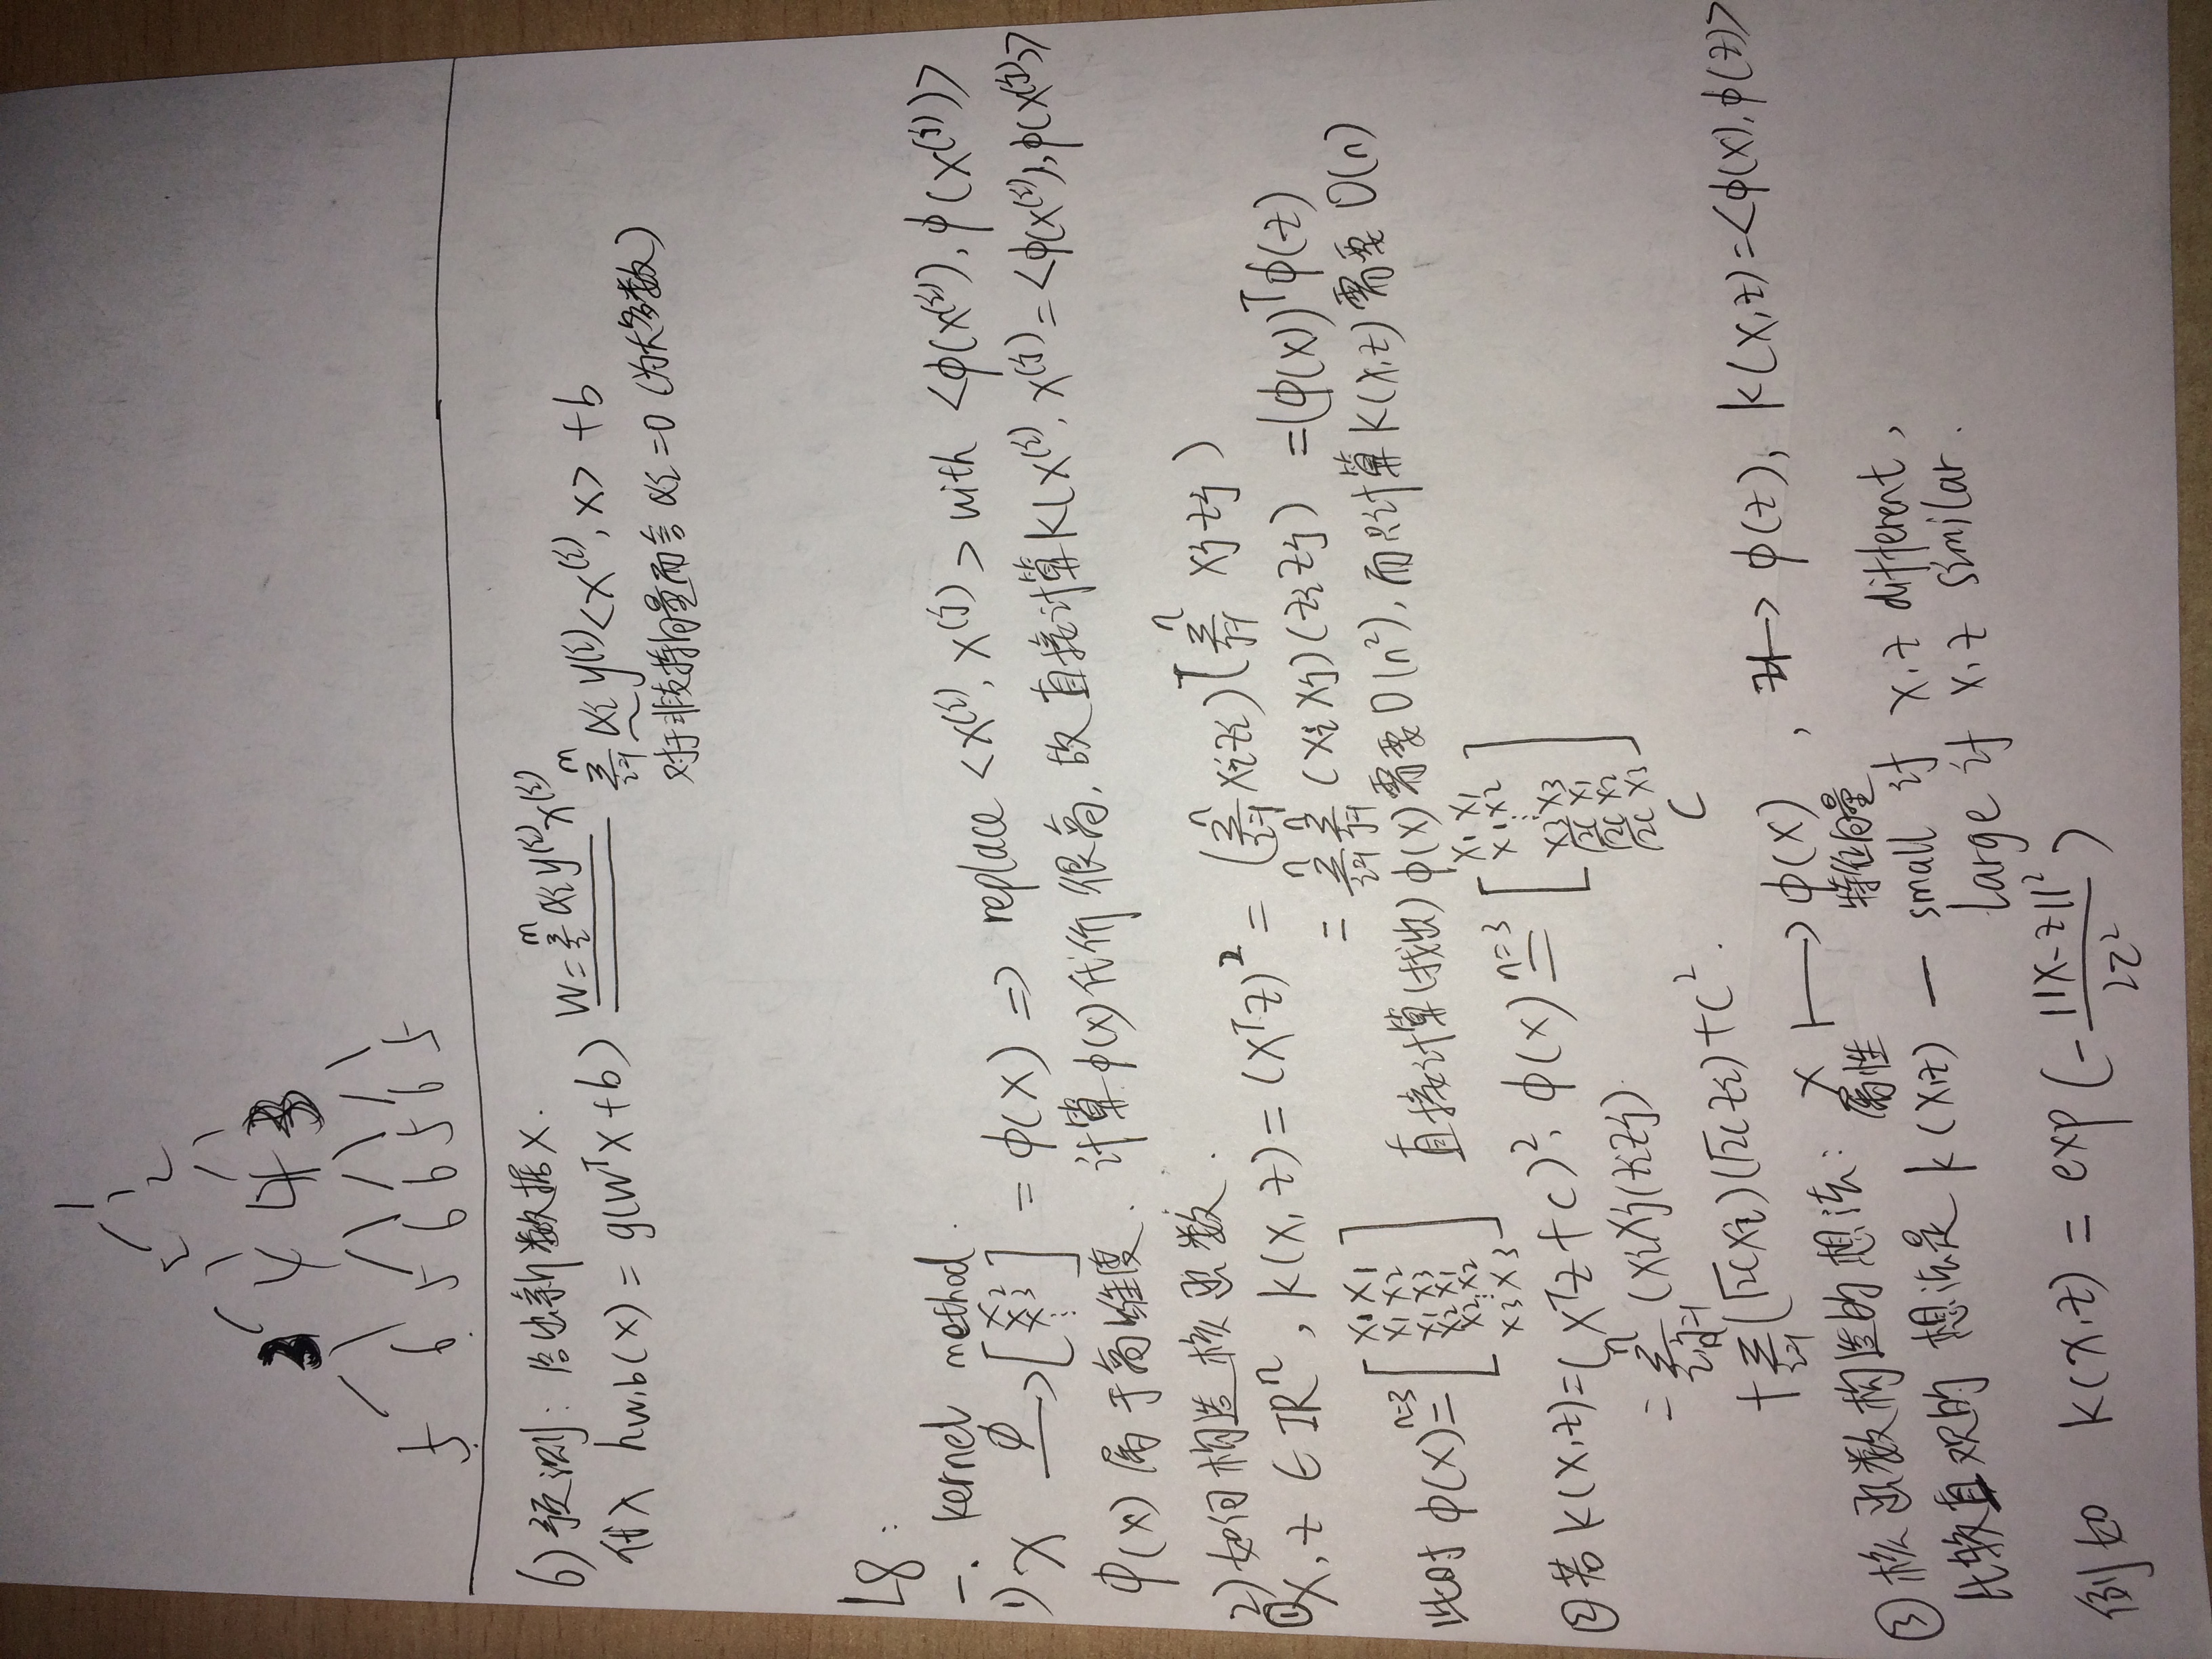 1
2 2
3 4 4 3
5 6 5 6 6 5 6 5
6) 预测: 给出新数据x.
代入 h_{w,b}(x) = g(w^T x + b) \xlongequal{w = \sum_{i}^{m} α_i y^{(i)} x^{(i)}} \sum_{i=1}^{m} α_i y^{(i)} <x^{(i)}, x> + b
对于非支持向量而言 α_i = 0 (为大多数)
L8:
一. kernel method.
1) x \xrightarrow{φ} [x x^2 x^3 ⋮] = φ(x) => replace <x^{(i)}, x^{(j)}> with <φ(x^{(i)}), φ(x^{(j)})>
φ(x) 属于高维度. 计算φ(x)代价很高, 故直接计算K(x^{(i)}, x^{(j)} = <φ(x^{(i)}), φ(x^{(j)})>
2) 如何构造核函数.
① x, z ∈ IR^n, k(x, z) = (x^T z)^2 = (\sum_{i=1}^{n} x_i z_i)^T (\sum_{j=1}^{n} x_j z_j)
= \sum_{i=1}^{n} \sum_{j=1}^{n} (x_i x_j)(z_i z_j) = (φ(x))^T φ(z)
此时 φ(x) \overset{n=3}{=} [x_1 x_1 x_1 x_2 x_1 x_3 x_2 x_1 x_2 x_2 ⋮ x_3 x_3] 直接计算(找出) φ(x) 需要 O(n^2), 而只计算 K(x,z) 需要 O(n)
② 若 k(x,z) = (x^T z + c)^2, φ(x) \overset{n=3}{=} [x_1 x_1 x_1 x_2 ⋮ x_3 x_3 √2c x_1 √2c x_2 √2c x_3 c]
= \sum_{i,j=1}^{n} (x_i x_j)(z_i z_j)
+ \sum_{i=1}^{n} (√2c x_i)(√2c z_i) + c^2.
③ 核函数构造的想法: x ↦ φ(x), z ↦ φ(z), k(x,z) = <φ(x), φ(z)>
属性 特征向量
比较直观的想法是 k(x,z) — small if x, z different,
large if x, z similar.
例如 k(x,z) = exp(-\frac{||x-z||^2}{2τ^2})